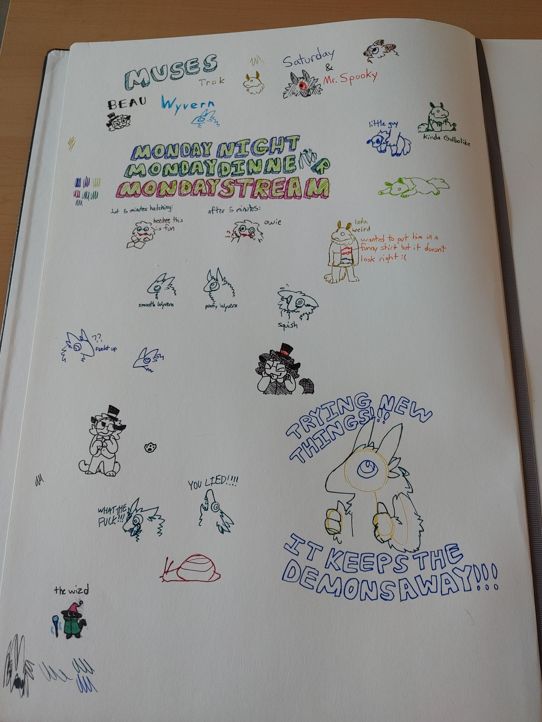 MUSES
Trok
Saturday
&
Mr. Spooky
BEAU
Wyvern
little guy
Kinda Godbolike
MONDAY NIGHT
MONDAY DINNER
MONDAY STREAM
1st 5 minutes hatching:
heehee this
is fun
after 5 minutes:
owie
lookin
weird
wanted to put him in a
funny shirt but it doesnt
look right :(
smooth wyvern
pointy wyvern
squish
??
fucked up
TRYING NEW
THINGS!!!
YOU LIED!!!!
WHAT THE
FUCK!!!
IT KEEPS THE
DEMONS AWAY!!!
the wizd